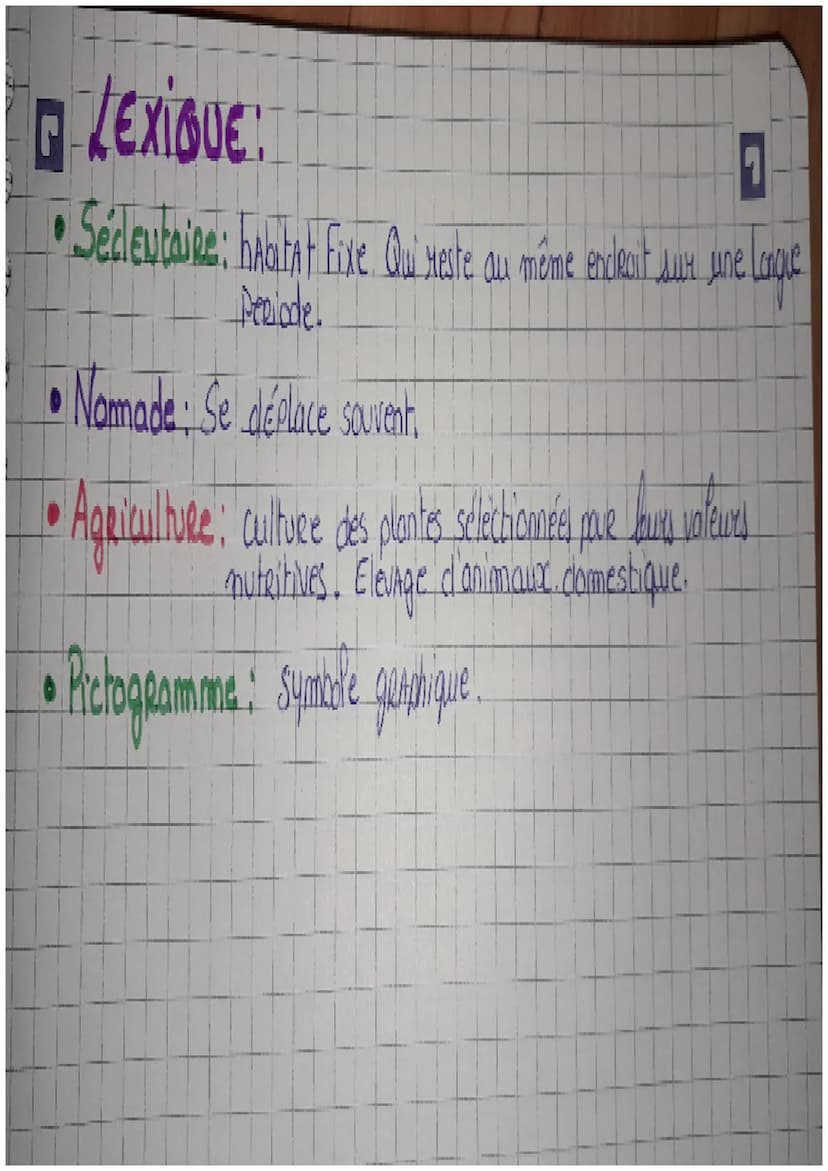 LEXIQUE:
• Sédentaire: habitat Fixe. Qui reste au même endroit sur une longue
Periode.
• Nomade: Se déplace souvent.
• Agriculture: culture des plantes séléctionnées pour leurs valeurs
nutritives. Elevage d'animaux domestique.
• Pictogramme: symbole graphique.